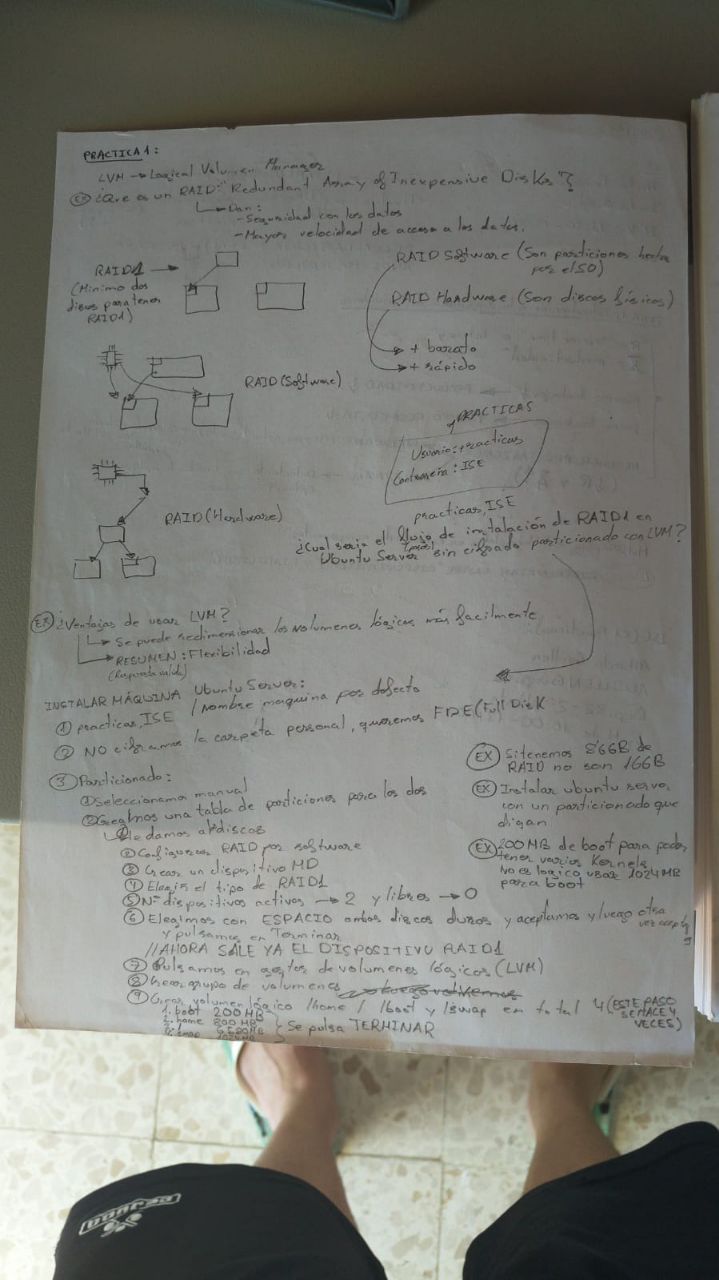 PRACTICA 1:
LVM → Logical Volumen Manager
EX ¿Que es un RAID: "Redundant Array of Inexpensive Disks"?
Dan:
- Seguridad con los datos
- Mayor velocidad de acceso a los datos.
RAID1 →
(Minimo dos
discos para tener
RAID1)
RAID Software (Son particiones hechas
por el SO)
RAID Hardware (Son discos físicos)
→ + barato
→ + rápido
RAID (Software)
PRACTICAS
Usuario: practicas
Contraseña: ISE
RAID (Hardware)
practicas, ISE
¿Cual seria el flujo de instalación de RAID1 en
Ubuntu Server sin cifrado particionado con LVM?
EX ¿Ventajas de usar LVM?
Se puede redimensionar los volumenes lógicos más facilmente
RESUMEN: Flexibilidad
(Respuesta valida)
INSTALAR MÁQUINA Ubuntu Server:
① practicas, ISE / Nombre maquina por defecto
② NO ciframos la carpeta personal, queremos FDE (Full Disk
③ Particionado:
① Seleccionamos manual
② Creamos una tabla de particiones para los dos
Le damos a discos
② Configurar RAID por software
③ Crear un dispositivo MD
④ Elegir el tipo de RAID1
⑤ Nº dispositivos activos → 2 y libres → 0
⑥ Elegimos con ESPACIO ambos discos duros y aceptamos y luego otra vez
y pulsamos en Terminar
// AHORA SALE YA EL DISPOSITIVO RAID1
⑦ Pulsamos en gestor de volumenes lógicos (LVM)
⑧ Crear grupo de volumenes
⑨ Crear volumen lógico /home / /boot y /swap en total 4 (ESTE PASO
SE HACE 4
VECES)
1. boot 200MB
2. home 800MB
Se pulsa TERMINAR
EX Si tenemos 8GB de
RAID no son 16GB
EX Instalar ubuntu server
con un particionado que
digan
EX 200MB de boot para poder
tener varios Kernels
No es logico usar 1024MB
para boot